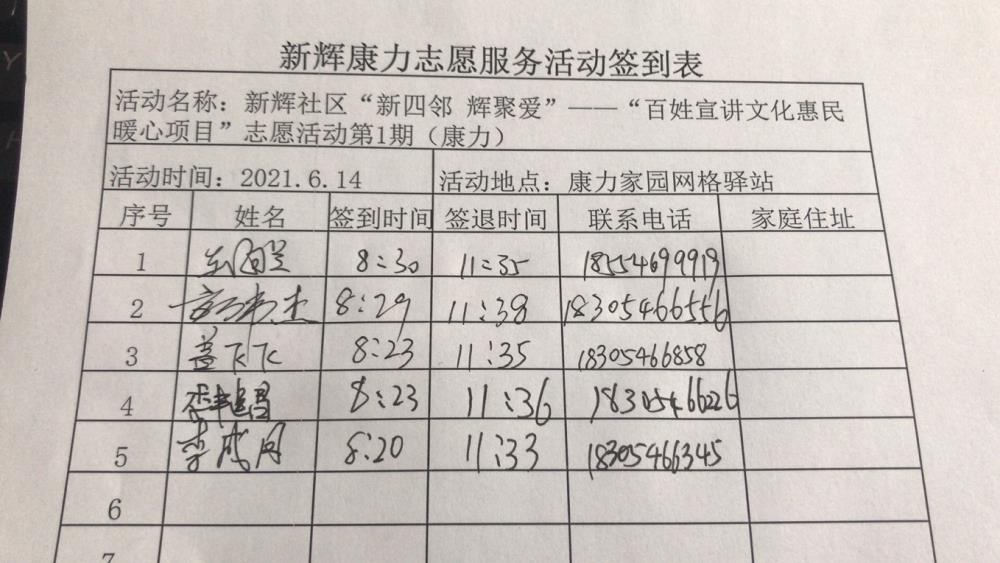 新辉康力志愿服务活动签到表
活动名称：新辉社区“新四邻 辉聚爱”——“百姓宣讲文化惠民
暖心项目”志愿活动第1期（康力）
活动时间：2021.6.14 活动地点：康力家园网格驿站
序号 姓名 签到时间 签退时间 联系电话 家庭住址
1 8:30 11:35 18554699919
2 8:29 11:38 18305466556
3 盖飞飞 8:23 11:35 18305466858
4 8:23 11:36 18305466226
5 李成凤 8:20 11:33 18305466345
6
7